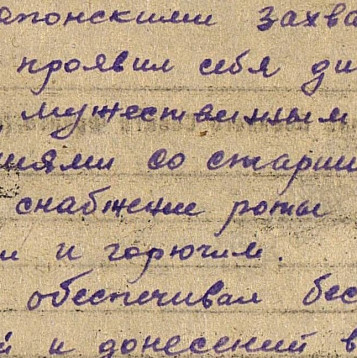 японскими захва
проявил себя ди
, мужественным
ниями со старши
снабжение роты
и и горючим.
обеспечивал бес
й и донесений в